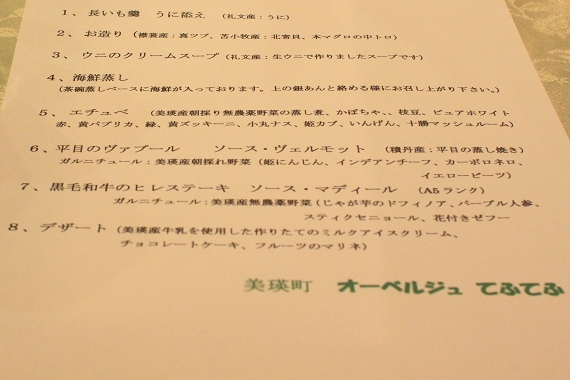 1、長いも羹 うに添え (礼文産：うに)
2、お造り (襟裳産：真ツブ、苫小牧産：北寄貝、本マグロの中トロ)
3、ウニのクリームスープ (礼文産：生ウニで作りましたスープです)
4、海鮮蒸し
(茶碗蒸しベースに海鮮が入っております。上の銀あんと絡める様にお召し上がり下さい。)
5、エチュベ (美瑛産朝採り無農薬野菜の蒸し煮、かぼちゃ、、枝豆、ピュアホワイト
赤、黄パプリカ、緑、黄ズッキーニ、小丸ナス、姫カブ、いんげん、十勝マッシュルーム)
6、平目のヴァプール ソース・ヴェルモット (積丹産：平目の蒸し焼き)
ガルニチュール：美瑛産朝採れ野菜 (姫にんじん、インデアンチーフ、カーボロネロ、
イエロービーツ)
7、黒毛和牛のヒレステーキ ソース・マディール (A5ランク)
ガルニチュール：美瑛産無農薬野菜 (じゃが芋のドフィノア、パープル人参、
スティクセニョール、花付きゼフー
8、デザート (美瑛産牛乳を使用した作りたてのミルクアイスクリーム、
チョコレートケーキ、フルーツのマリネ)
美瑛町 オーベルジュ てふてふ